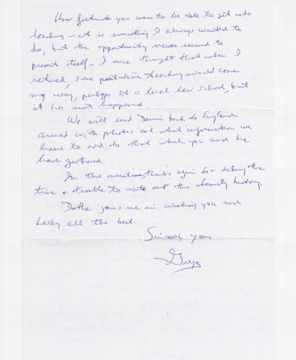 How fortunate you were to be able to get into
teaching - it is something I always wanted to
do, but the opportunity never seemed to
present itself. I once thought that when I
retired, some part-time teaching would come
my way, perhaps at a local law school, but
it has not happened.
We will send Dennis back to England
armed with photos and what information we
have to add to that which you and he
have gathered.
In the meantime, thanks again for taking the
time & trouble to write out the family history.
joins me in wishing you and
Lesley all the best.
Sincerely yours